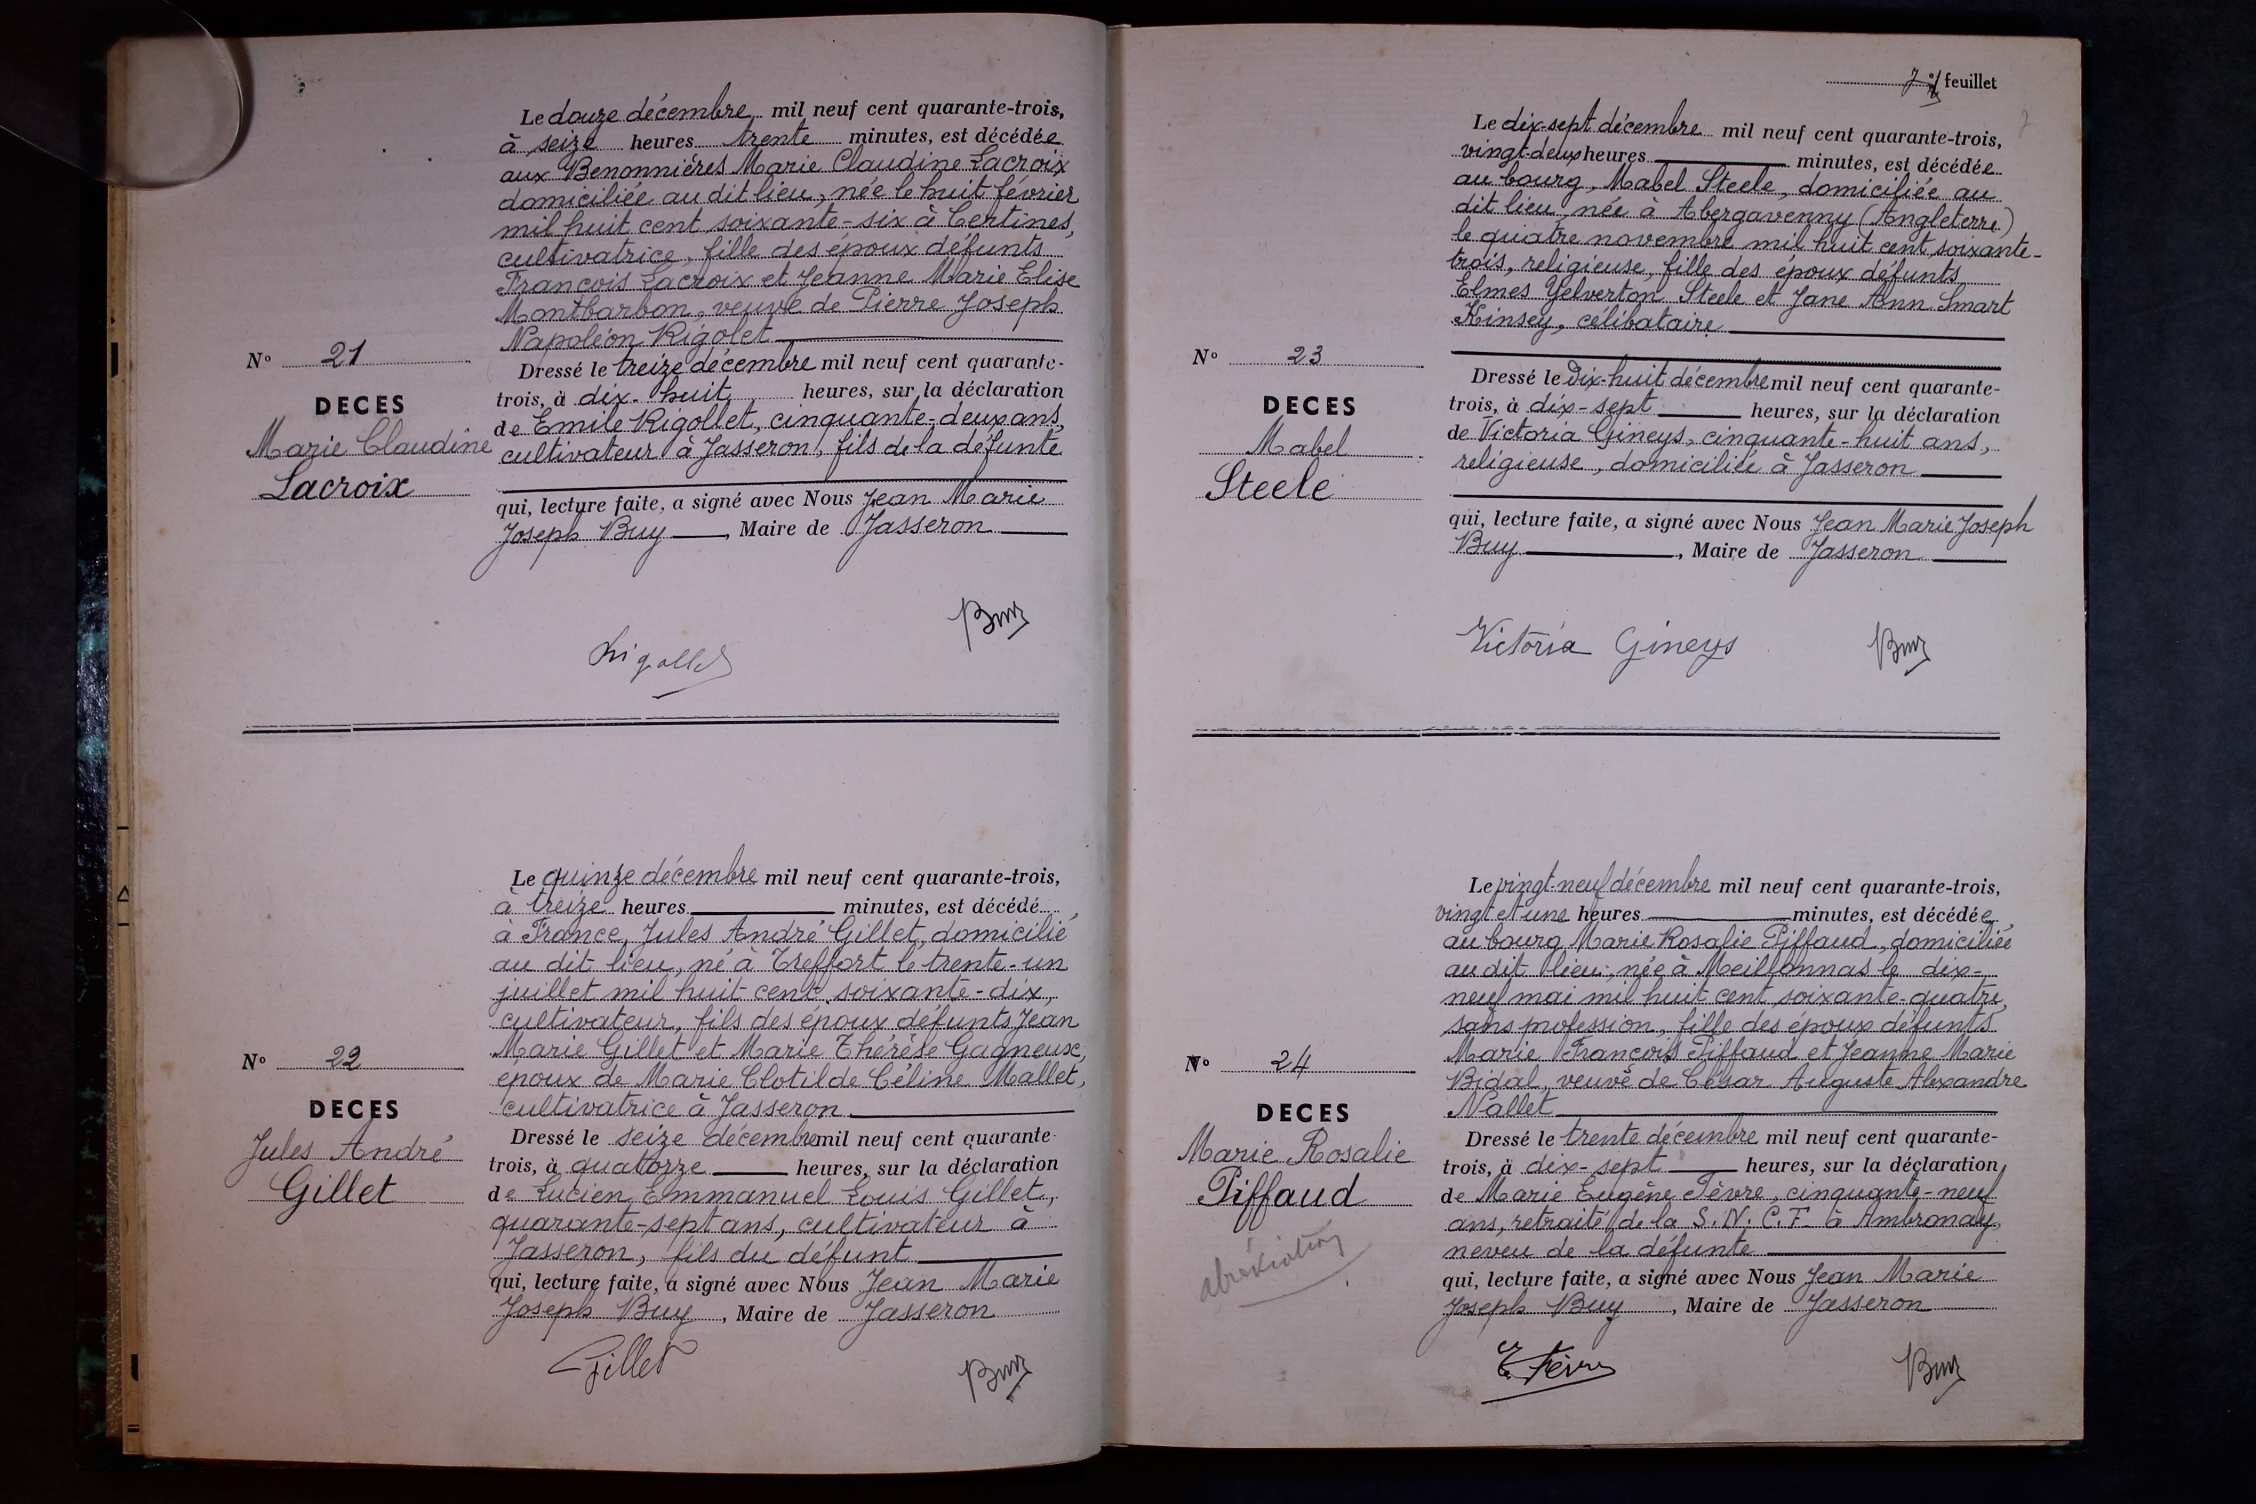 Le douze décembre mil neuf cent quarante-trois,
à seize heures trente minutes, est décédée
aux Benonnières Marie Claudine Lacroix
domiciliée au dit lieu, née le huit février
mil huit cent soixante-six à Certines,
cultivatrice, fille des époux défunts
François Lacroix et Jeanne Marie Elise
Montbarbon, veuve de Pierre Joseph
Napoléon Rigolet
N° 21
DECES
Marie Claudine
Lacroix
Dressé le treize décembre mil neuf cent quarante-
trois, à dix-huit heures, sur la déclaration
de Emile Rigollet, cinquante-deux ans,
cultivateur à Jasseron, fils de la défunte
qui, lecture faite, a signé avec Nous Jean Marie
Joseph Buy, Maire de Jasseron
Rigollet
Buy
Le quinze décembre mil neuf cent quarante-trois,
à treize heures minutes, est décédé
à France, Jules André Gillet, domicilié
au dit lieu, né à Treffort le trente-un
juillet mil huit cent soixante-dix,
cultivateur, fils des époux défunts Jean
Marie Gillet et Marie Thérèse Gagneuse,
époux de Marie Clotilde Céline Mallet,
cultivatrice à Jasseron
N° 22
DECES
Jules André
Gillet
Dressé le seize décembre mil neuf cent quarante-
trois, à quatorze heures, sur la déclaration
de Lucien Emmanuel Louis Gillet,
quarante-sept ans, cultivateur à
Jasseron, fils du défunt
qui, lecture faite, a signé avec Nous Jean Marie
Joseph Buy, Maire de Jasseron
Gillet
Buy
7 feuillet
7
Le dix-sept décembre mil neuf cent quarante-trois,
vingt-deux heures minutes, est décédée
au bourg, Mabel Steele, domiciliée au
dit lieu, née à Abergavenny (Angleterre)
le quatre novembre mil huit cent soixante-
trois, religieuse, fille des époux défunts
Elmes Yelverton Steele et Jane Ann Smart
Kinsey, célibataire
N° 23
DECES
Mabel
Steele
Dressé le Dix-huit décembre mil neuf cent quarante-
trois, à dix-sept heures, sur la déclaration
de Victoria Gineys, cinquante-huit ans,
religieuse, domiciliée à Jasseron
qui, lecture faite, a signé avec Nous Jean Marie Joseph
Buy, Maire de Jasseron
Victoria Gineys
Buy
Le vingt-neuf décembre mil neuf cent quarante-trois,
vingt et une heures minutes, est décédée
au bourg Marie Rosalie Piffaud, domiciliée
au dit lieu, née à Meillonnas le dix-
neuf mai mil huit cent soixante-quatre,
sans profession, fille des époux défunts
Marie François Piffaud et Jeanne Marie
Bidal, veuve de César Auguste Alexandre
Nallet
N° 24
DECES
Marie Rosalie
Piffaud
Dressé le trente décembre mil neuf cent quarante-
trois, à dix-sept heures, sur la déclaration
de Marie Eugène Fèvre, cinquante-neuf
ans, retraité de la S.N.C.F. à Ambronay,
neveu de la défunte
qui, lecture faite, a signé avec Nous Jean Marie
Joseph Buy, Maire de Jasseron
E. Fèvre
Buy